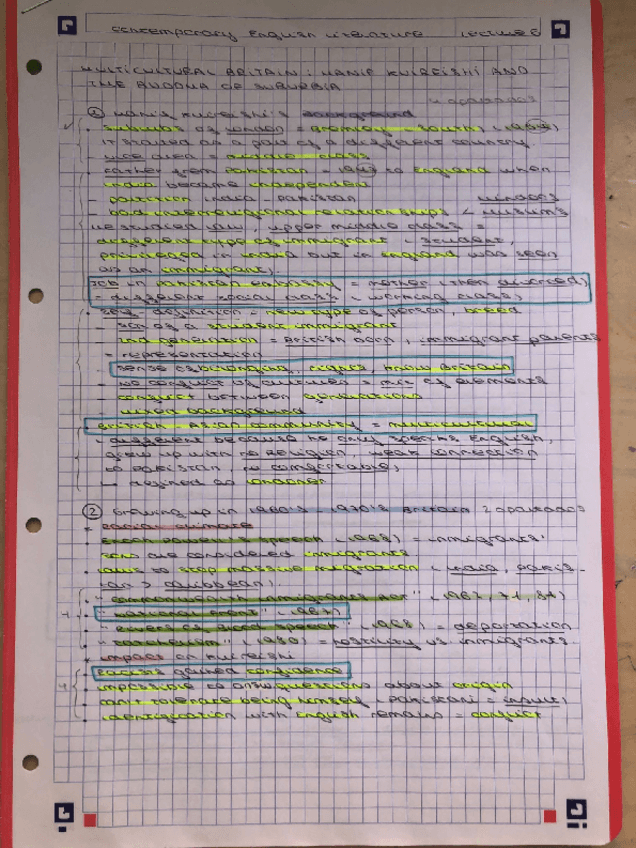 contemporary English literature lecture 6
MULTICULTURAL BRITAIN: HANIF KUREISHI AND
THE BUDDHA OF SUBURBIA
4 apartados
1 Hanif Kureishi's background
suburbs of London = Bromley - South (1954)
it started as a part of a different country
- nice area = middle class
· Father from Pakistan = 1947 to England when
India became independent
- partition India - Pakistan hindoos
- bad international relationships < muslims
He studied law, upper middle class =
different type of immigrant (student,
privileged in India but in England was seen
as an immigrant)
Job in Pakistan embassy = mother (then divorced)
= different social class (working class)
· Self definition = new type of person, breed
- son of a student immigrant
- 2nd generation = British born, immigrant parents
= representation
- sense of belonging, rights, know Britain
- no conflict of cultures = mix of elements
- conflict between generations
- mixed background
· British - Asian community = multicultural
different because he only speaks English,
grew up with no religion, weak connection
to Pakistan, (no comfortable)
↳ defined as Londoner
2 Growing up in 1960's - 1970's Britain 2 apartados
* racial climate
· Enoch Powell's speech (1968) = immigrants'
sons are considered immigrants
· laws to stop massive migration (India, Pakis-
tan > Caribbean)
· "Commonwealth immigrants act" (1962, 71, 81)
· "National Front" (1967)
· "Rivers of blood speech" (1968) = deportation
(1980) = hostility vs immigrants
* impact on Kureishi
· racists gained confidence
· impossible to answer questions about origin
· can't tolerate being himself (Pakistani = insult)
· identification with English remains = conflict